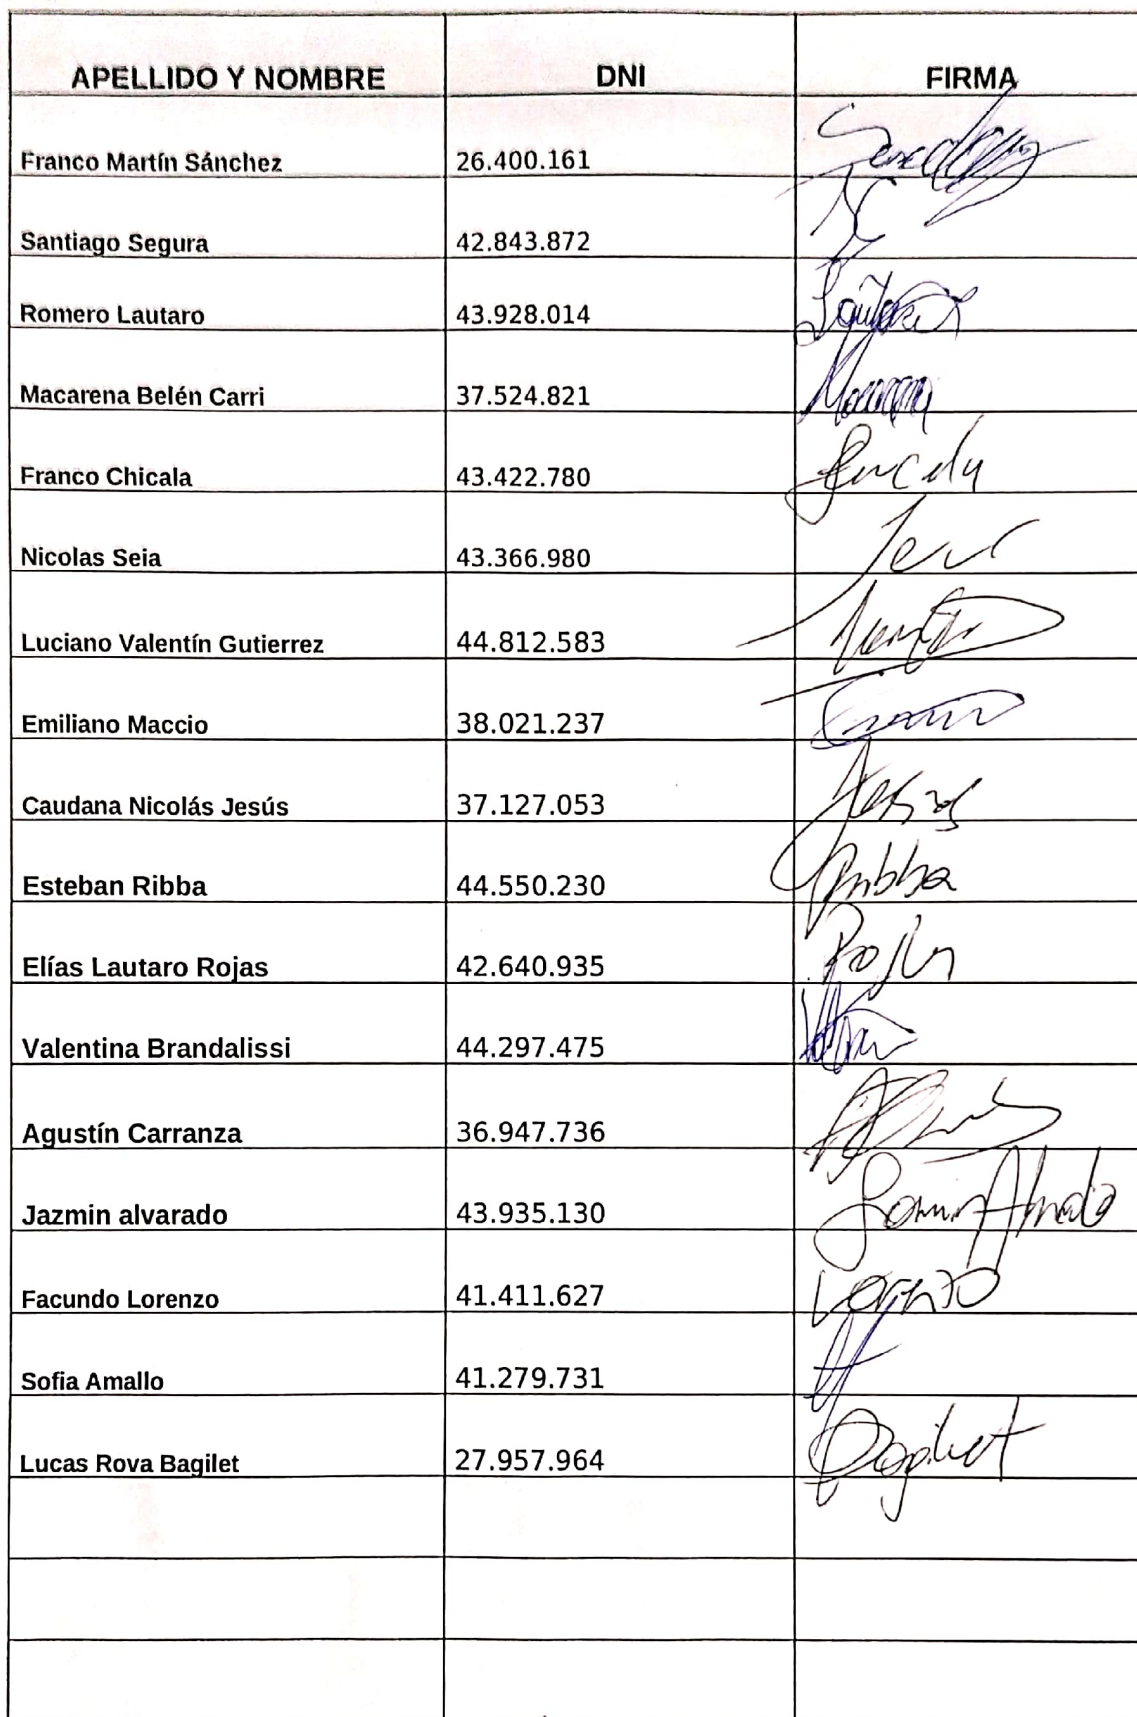 APELLIDO Y NOMBRE DNI FIRMA
Franco Martín Sánchez 26.400.161
Santiago Segura 42.843.872
Romero Lautaro 43.928.014
Macarena Belén Carri 37.524.821
Franco Chicala 43.422.780
Nicolas Seia 43.366.980
Luciano Valentín Gutierrez 44.812.583
Emiliano Maccio 38.021.237
Caudana Nicolás Jesús 37.127.053
Esteban Ribba 44.550.230 Ribba
Elías Lautaro Rojas 42.640.935
Valentina Brandalissi 44.297.475
Agustín Carranza 36.947.736
Jazmin alvarado 43.935.130
Facundo Lorenzo 41.411.627 Lorenzo
Sofia Amallo 41.279.731
Lucas Rova Bagilet 27.957.964 Bagilet